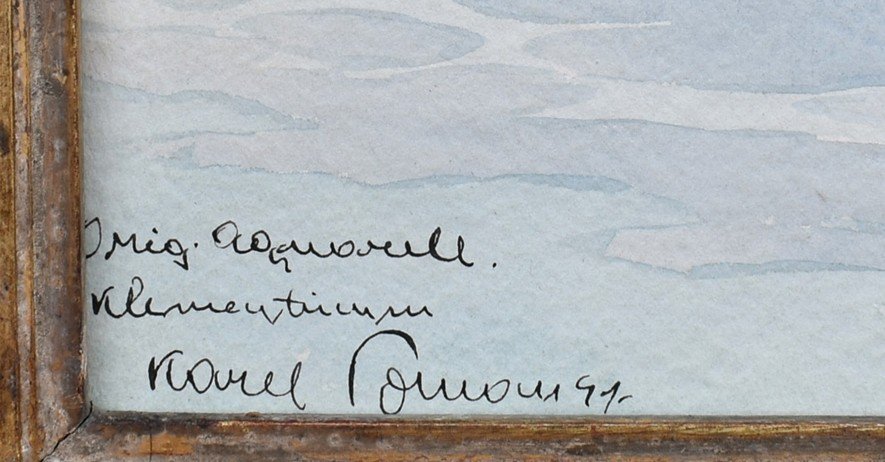 Orig. Aquarell.
Klementinum
Karel